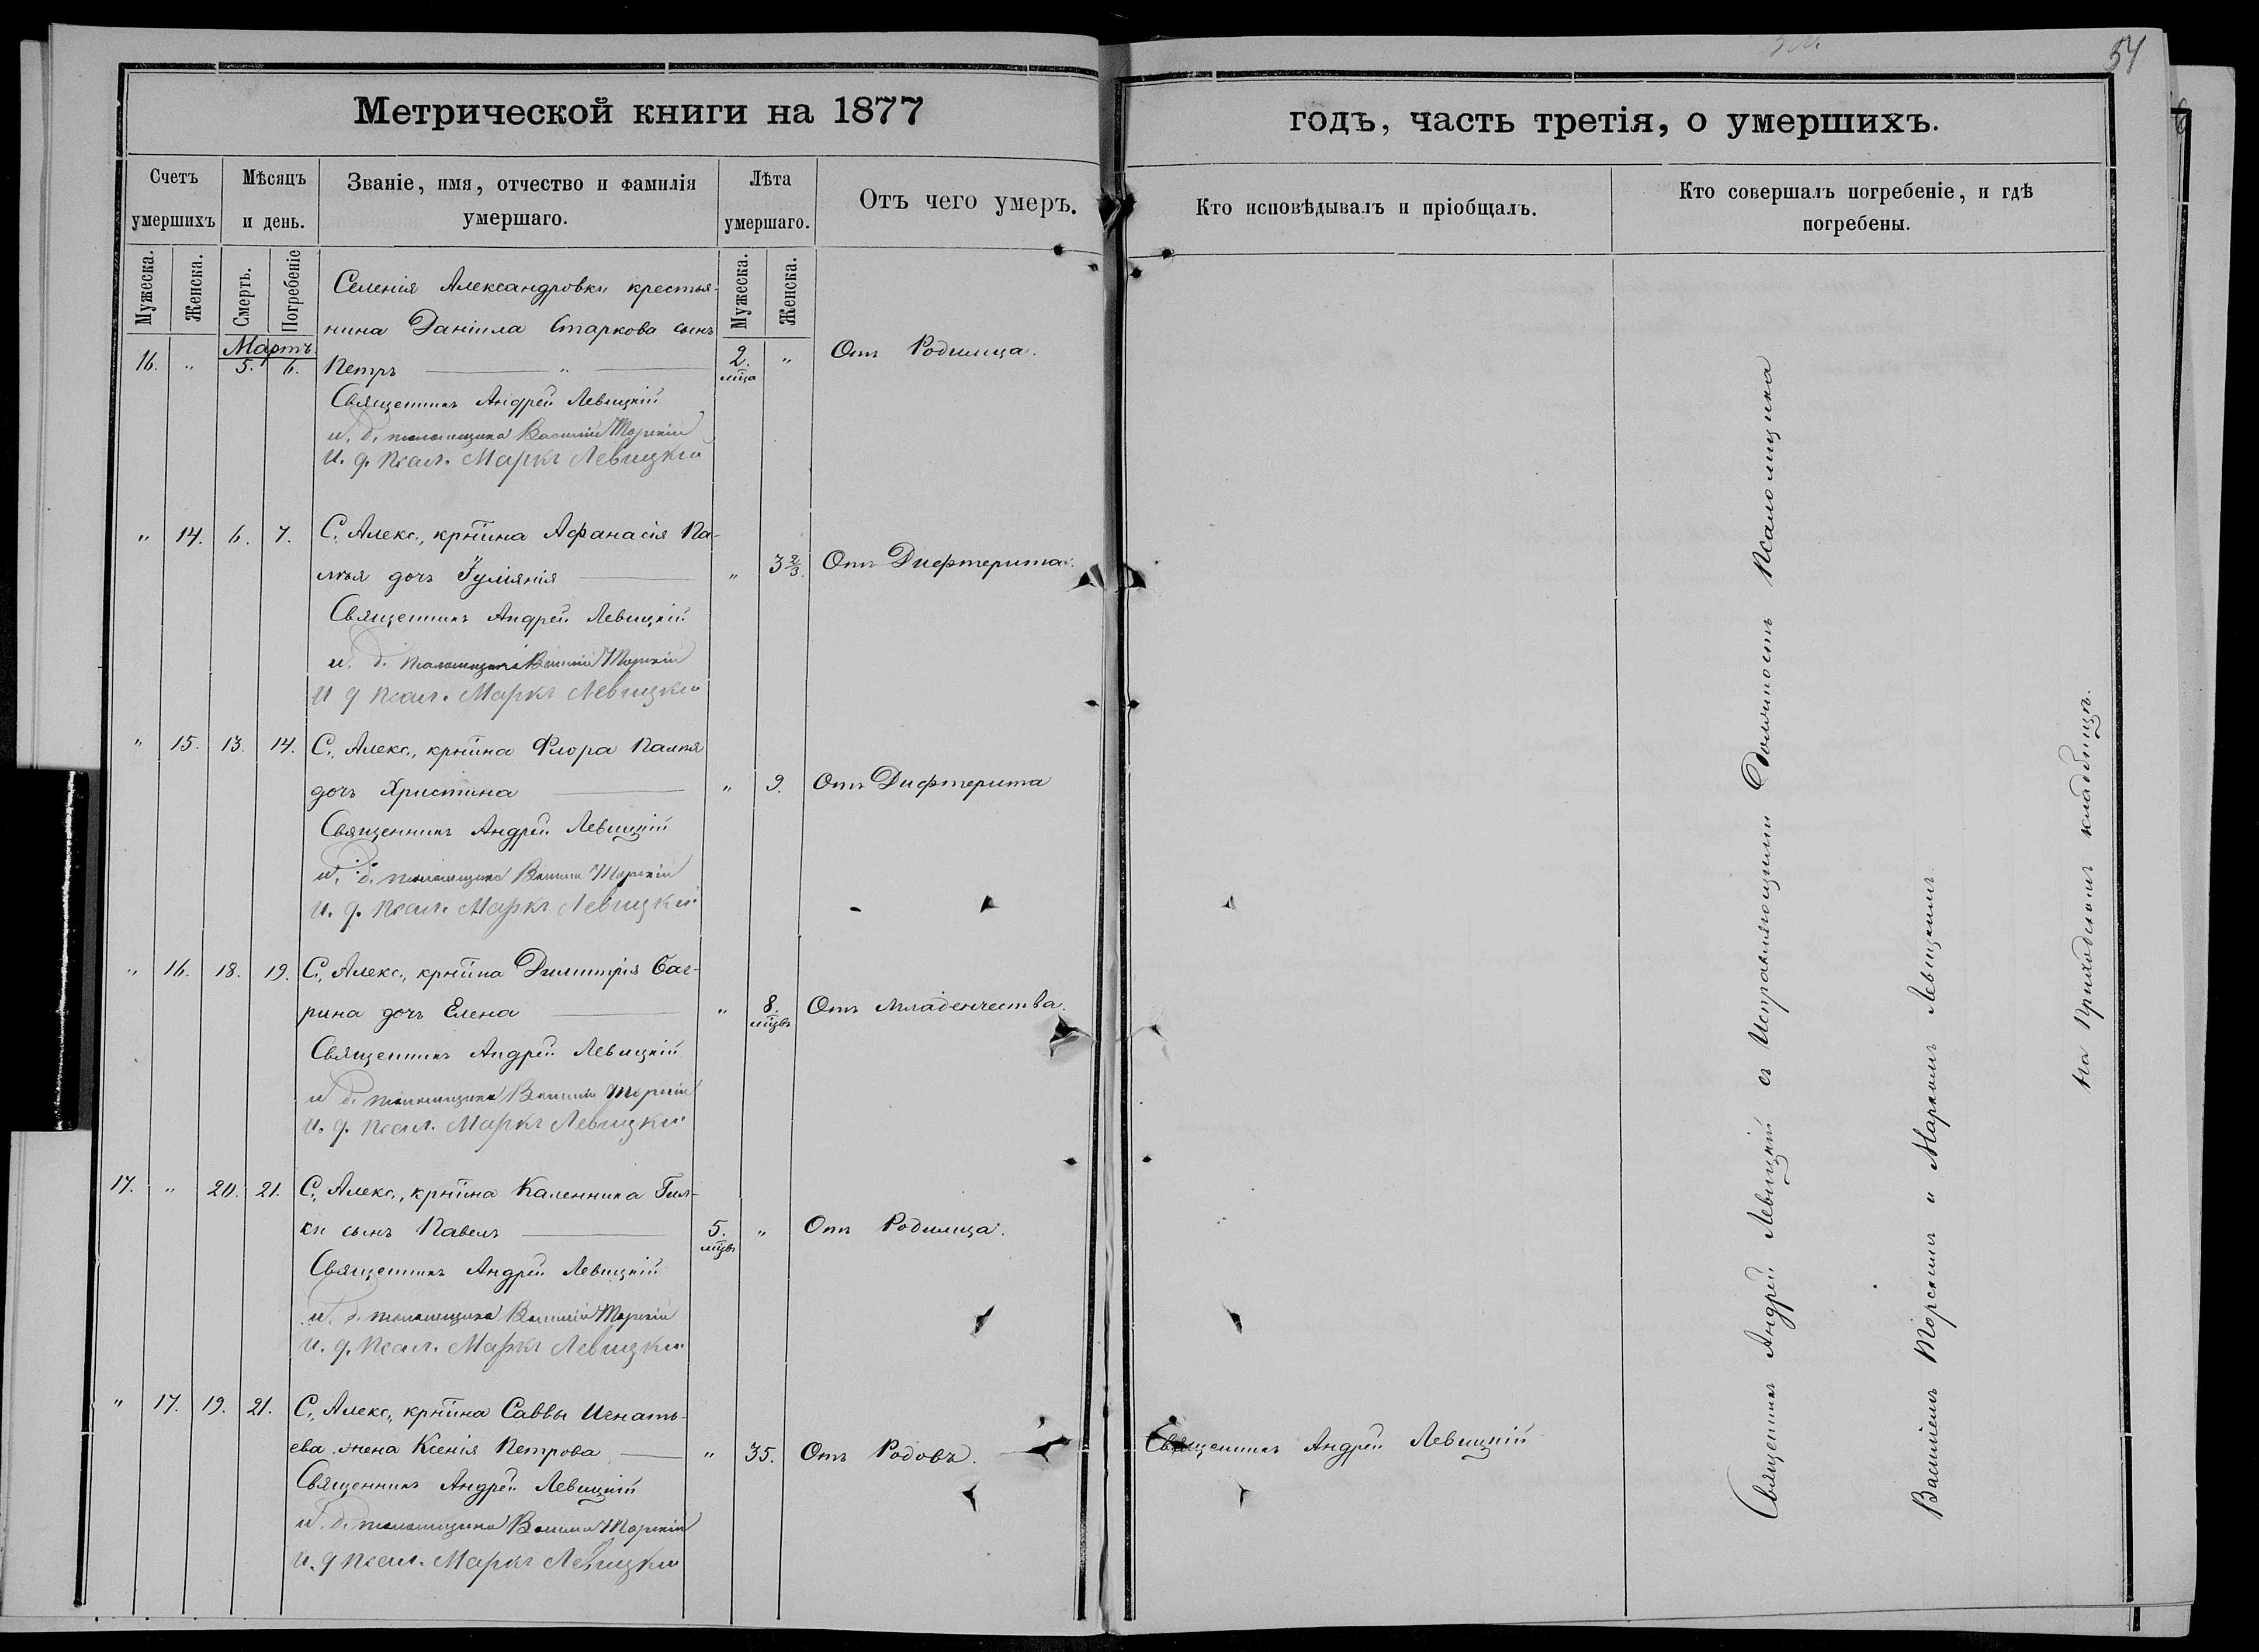 54
Метрической книги на 1877
годъ, часть третія, о умершихъ.
Счетъ умершихъ
Мѣсяцъ и день.
Званіе, имя, отчество и фамилія умершаго.
Лѣта умершаго.
Отъ чего умеръ.
Кто исповѣдывалъ и пріобщалъ.
Кто совершалъ погребеніе, и гдѣ погребены.
Мужеска.
Женска.
Смерть.
Погребеніе
Мужеска.
Женска.
Мартъ.
Селенія Александровки крестья-
нина Даніила Старкова сынъ
16. " 5. 6. Петръ " 2. мца " Отъ Родимца.
Священникъ Андрей Левицкій
и. д. псаломщика Василій Торскій
и. д. псал. Маркъ Левицкій
" 14. 6. 7. С. Алекс., крнина Афанасія Па-
лія дочь Іуліянія " 3 2/3. Отъ Дифтерита.
Священникъ Андрей Левицкій
и. д. псаломщика Василій Торскій
и д псал. Маркъ Левицкій
" 15. 13. 14. С. Алекс., крнина Флора Палія
дочь Христина " 9. Отъ Дифтерита
Священникъ Андрей Левицкій
и. д. псаломщика Василій Торскій
и. д. псал. Маркъ Левицкій
" 16. 18. 19. С. Алекс., крнина Димитрія Баг-
рина дочь Елена " 8. мцвъ Отъ Младенчества.
Священникъ Андрей Левицкій
и д. псаломщика Василій Торскій
и. д. псал. Маркъ Левицкій
17. " 20. 21. С. Алекс., крнина Каленника Гил-
ки сынъ Павелъ 5. мцвъ " Отъ Родимца.
Священникъ Андрей Левицкій
и. д. псаломщика Василій Торскій
и. д. псал. Маркъ Левицкій
" 17. 19. 21. С. Алекс., крнина Саввы Игнать-
ева жена Ксенія Петрова " 35. Отъ Родовъ. Священникъ Андрей Левицкій
Священникъ Андрей Левицкій
и. д. псаломщика Василій Торскій
и. д псал. Маркъ Левицкій
Священникъ Андрей Левицкій съ Исправляющими Должность Псаломщика
Василіемъ Торскимъ и Маркомъ Левицкимъ.
На Приходскомъ кладбищѣ.